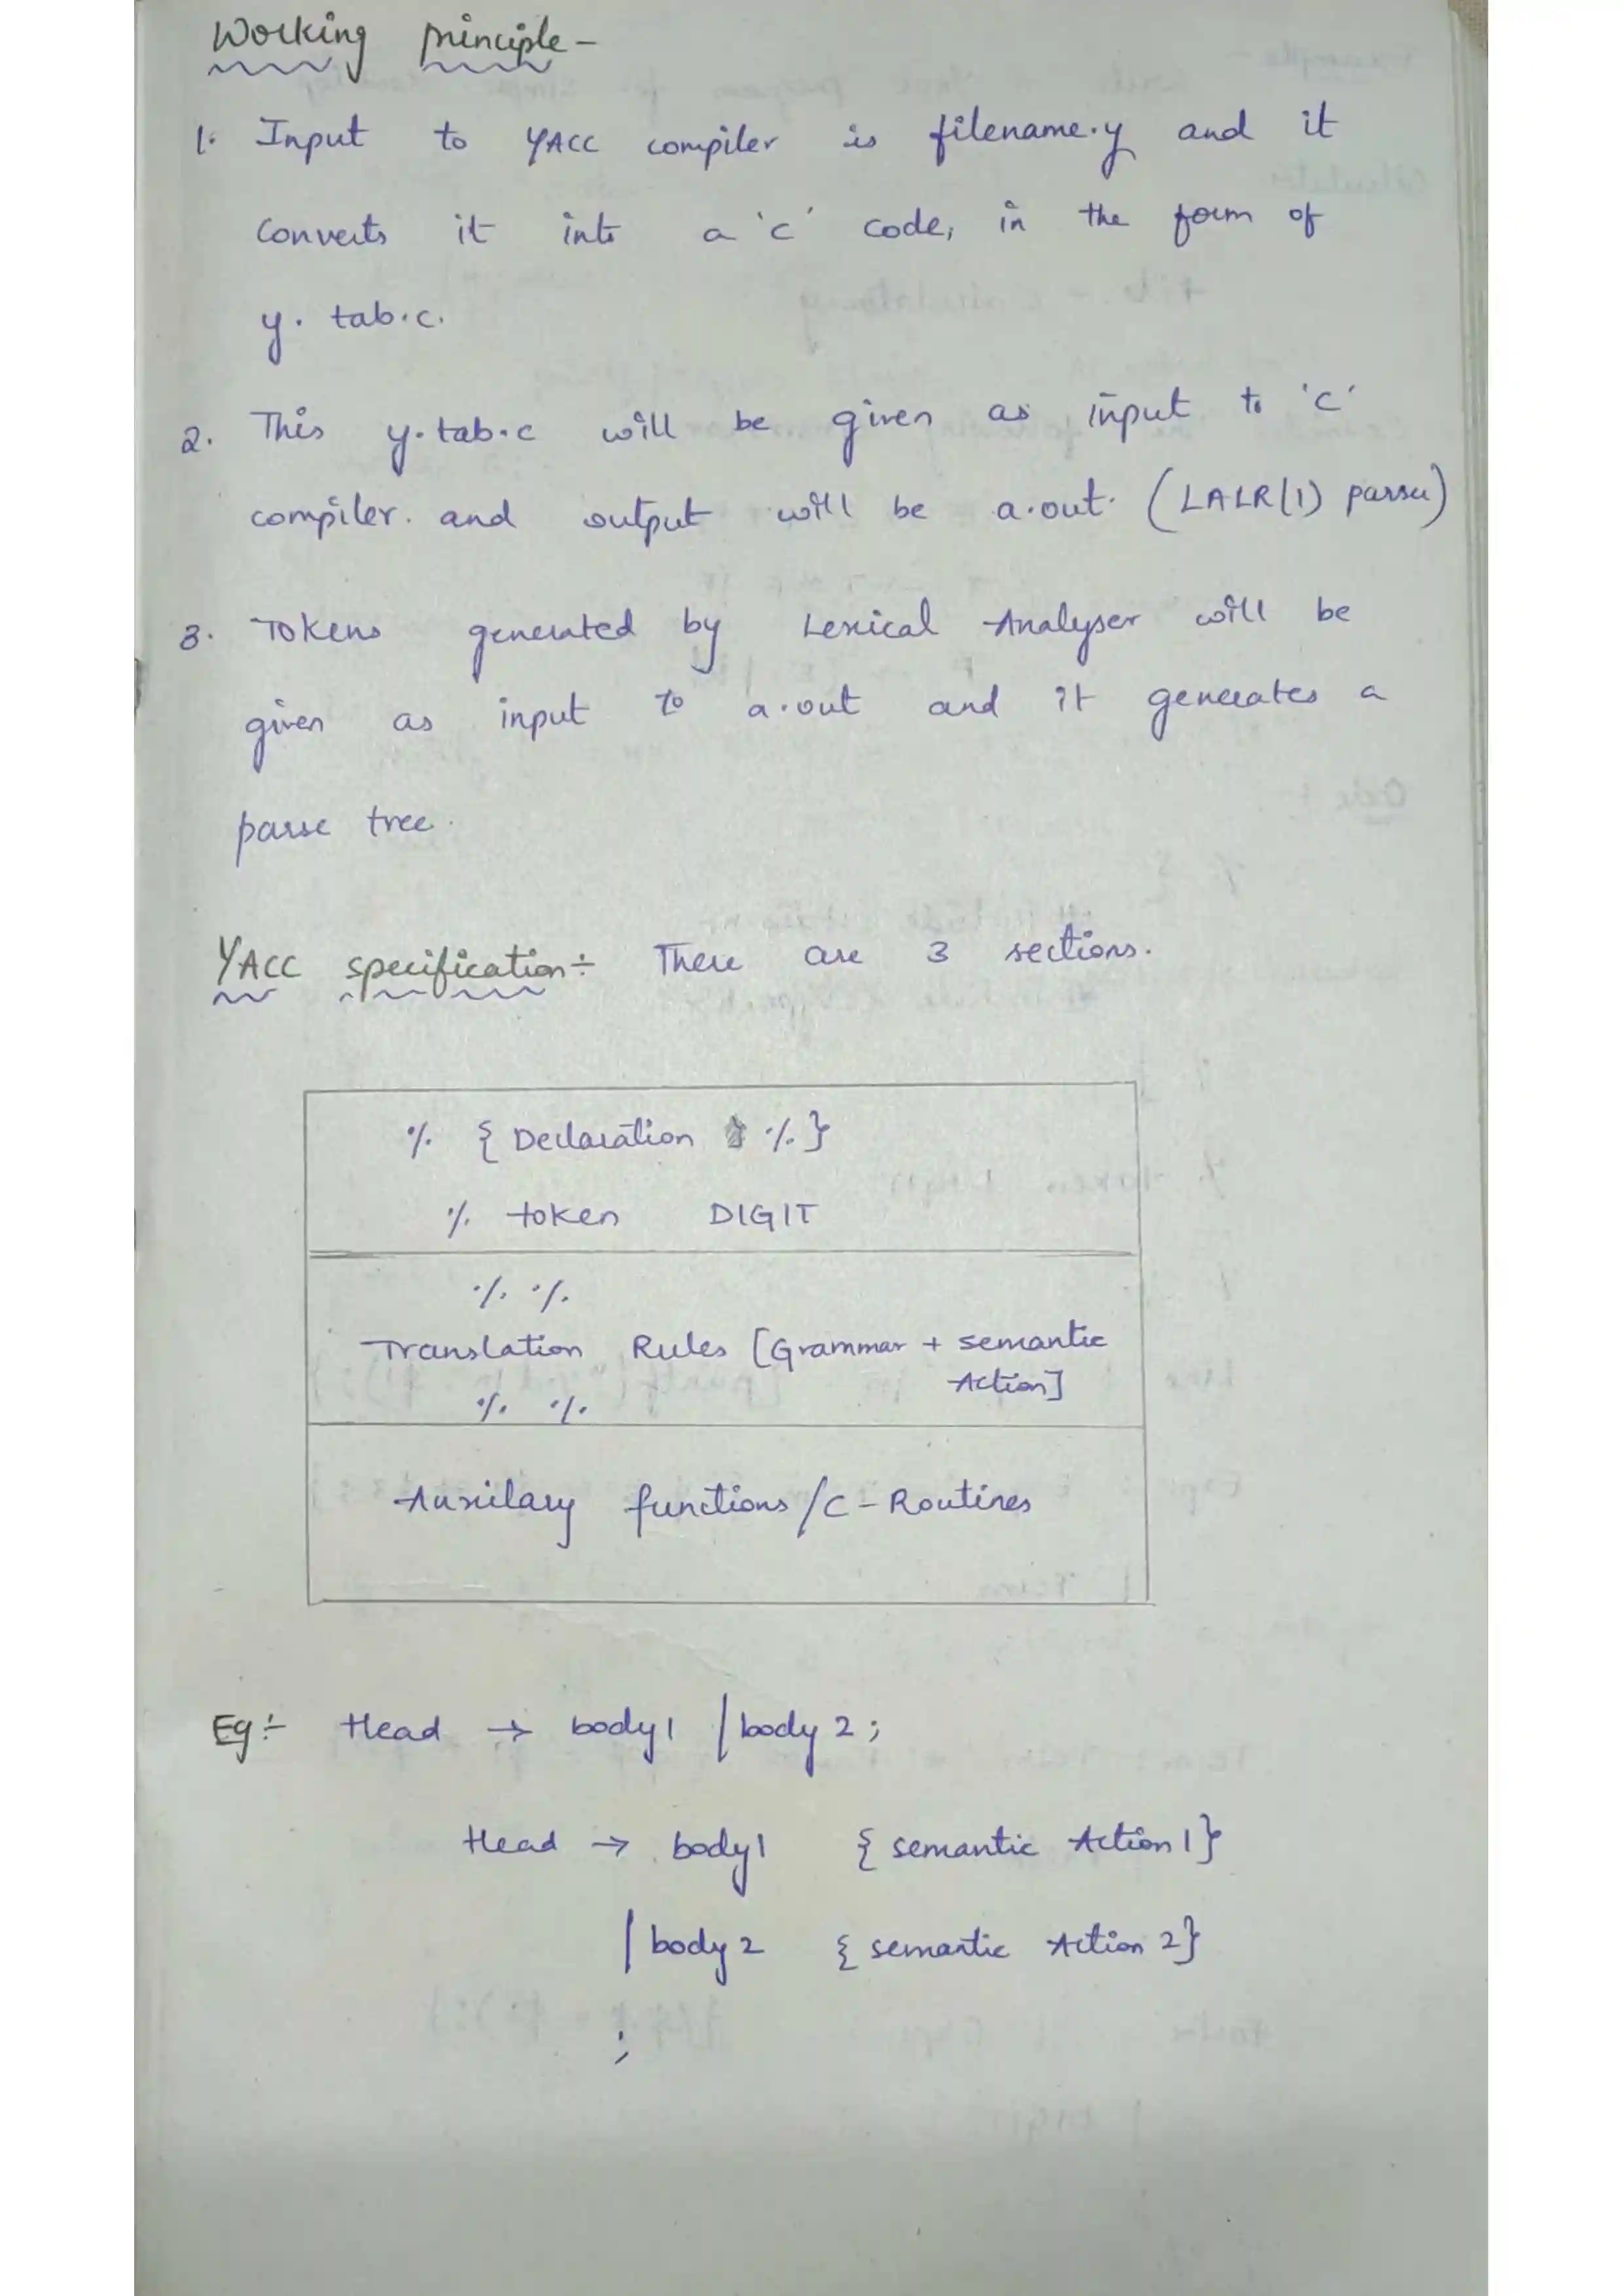 Working principle -
1. Input to YACC compiler is filename.y and it
converts it into a 'c' code, in the form of
y. tab.c.
2. This y.tab.c will be given as input to 'c'
compiler. and output will be a.out. (LALR(1) parser)
3. Tokens generated by Lexical Analyser will be
given as input to a.out and it generates a
parse tree.
YACC specification :- There are 3 sections.
% { Declaration %}
% token DIGIT
% %
Translation Rules [Grammar + semantic
Action]
% %
Auxilary functions / C - Routines
Eg :- Head → body1 | body 2 ;
Head → body1 { semantic Action 1}
| body 2 { semantic Action 2}
;